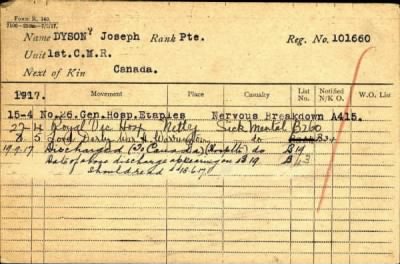 FORM R. 140.
Name DYSON, Joseph Rank Pte. Reg. No. 101660
Unit 1st.C.M.R.
Next of Kin Canada.
1917. Movement Place Casualty List No. Notified N/K O. W.O. List
15-4 No.26.Gen.Hosp.Etaples Nervous Breakdown A415.
27 4 Royal Vic Hosp Netley Sick Mental B260
8 5 Lord Derby War H. Warrington do B34
19.9.17 Discharged (To Canada) (Hosp. do B19
Date of above discharge appearing on B19 B43
should read 18.6.17